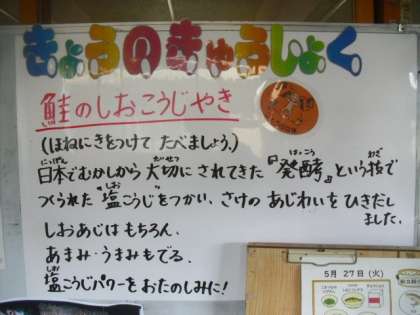 きょうのきゅうしょく
鮭のしおこうじやき
(ほねにきをつけて たべましょう。)
にっぽん たいせつ はっこう わざ
日本でむかしから 大切に されてきた『発酵』という技で
しお
つくられた "塩こうじをつかい、さけの あじわいを ひきだし
ました。
しおあじは もちろん、
あまみ・うまみもでる。
しお
塩こうじパワーを おたのしみに!
5月 27日(火)